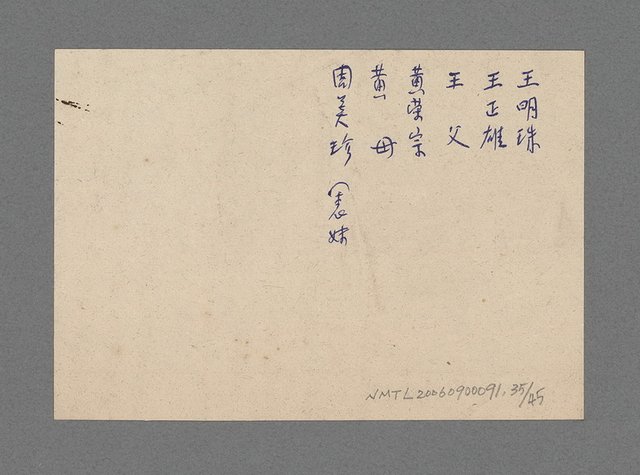 王明珠
王正雄
王父
黃榮宗
黃母
周美珍（表妹
NMTL20060900091.35/45